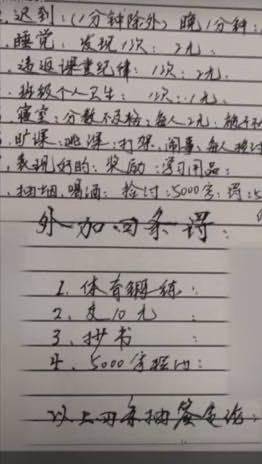 迟到:(1分钟除外) 晚1分钟:
睡觉,发现1次:2元.
违返课堂纪律:1次:2元.
班级个人卫生:1次:1元.
寝室:分数不及格:每人2元.
旷课、逃课、打架、闹事、每人检讨
表现好的:奖励:学习用品:
抽烟、喝酒:检讨:5000字:罚:5
外加四条罚:
1、体育锻练:
2、交10元:
3、抄书:
4、5000字检讨:
以上四条抽签定论: